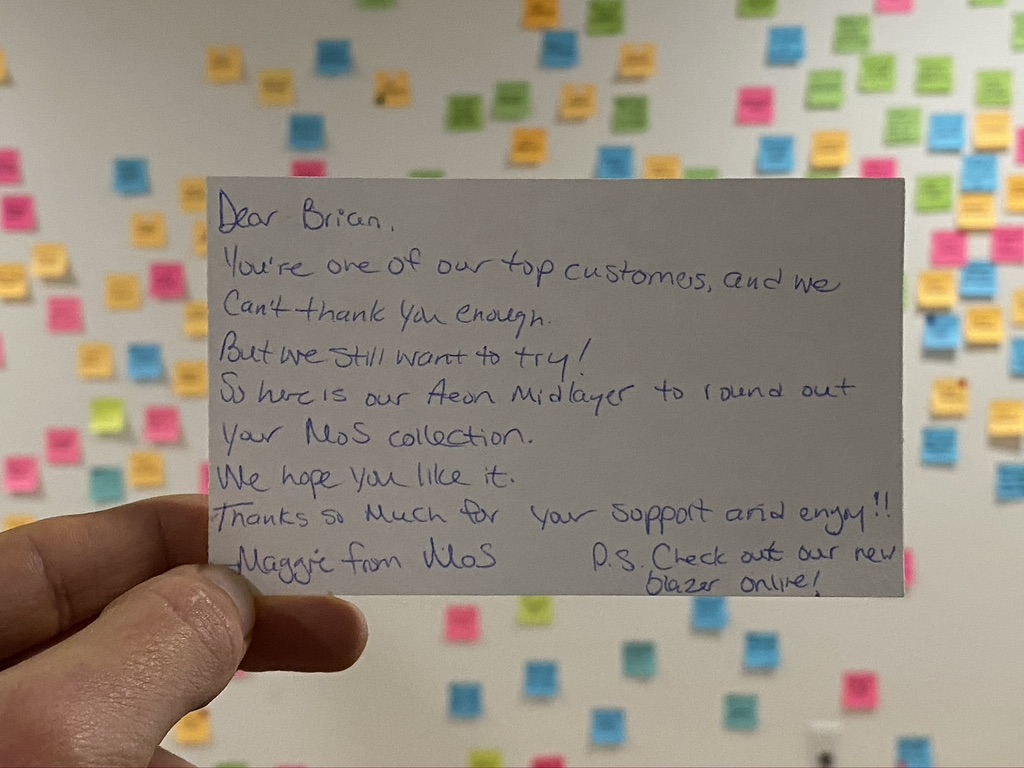 Dear Brian,
You're one of our top customers, and we
Can't thank you enough.
But we still want to try!
So here is our Aeon Midlayer to round out
your MoS collection.
We hope you like it.
Thanks so much for your support and enjoy!!
-Maggie from MoS
P.S. Check out our new
blazer online!